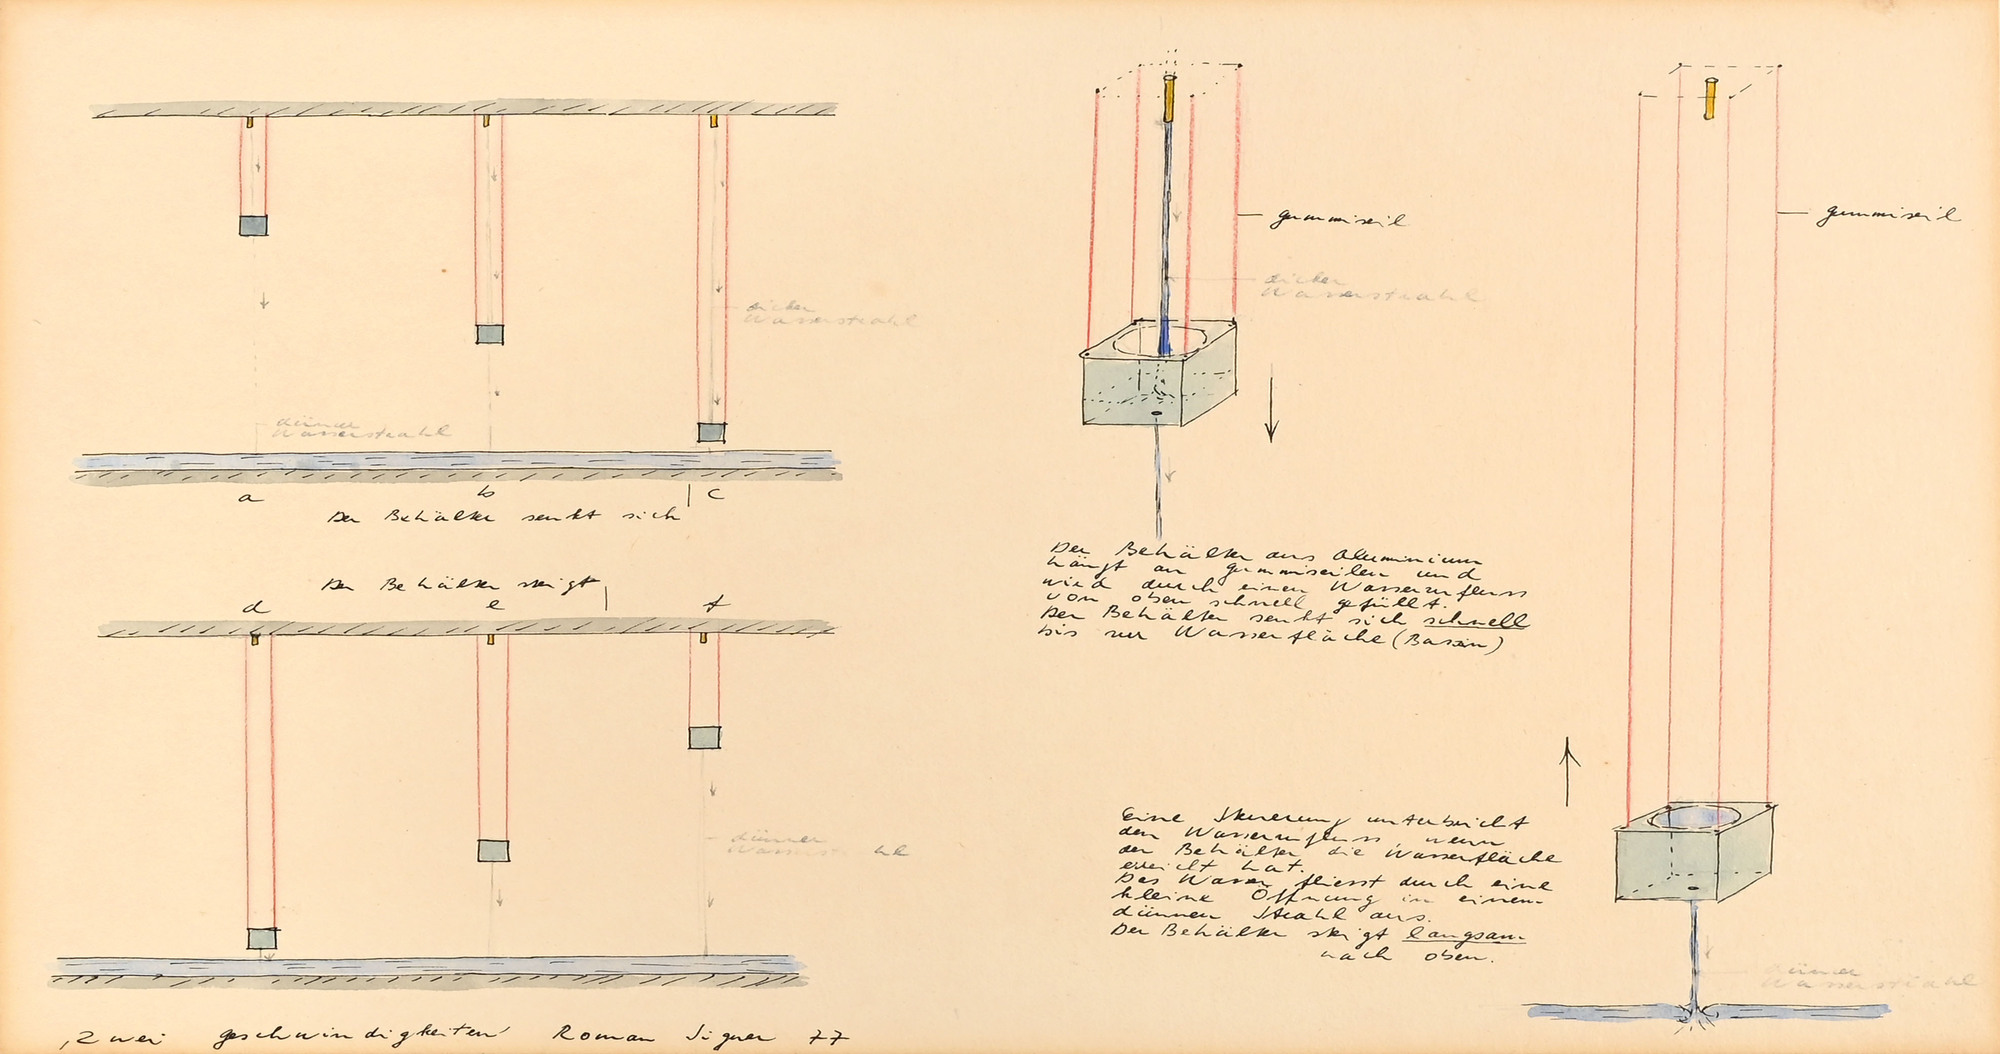 dicker
Wasserstrahl
dünner
Wasserstrahl
a b c
Der Behälter senkt sich
Der Behälter steigt
d e f
dünner
‚Zwei geschwindigkeiten' Roman Signer 77
gummiseil
dicker
Wasserstrahl
Der Behälter aus Aluminium
hängt an gummiseilen und
wird durch einen Wasserzufluss
von oben schnell gefüllt.
Der Behälter senkt sich schnell
bis zur Wasserfläche (Bassin)
gummiseil
Eine Steuerung unterbricht
den Wasserzufluss wenn
der Behälter die Wasserfläche
erreicht hat.
Das Wasser fliesst durch eine
kleine Öffnung in einem
dünnen Strahl aus.
Der Behälter steigt langsam
nach oben.
dünner
Wasserstrahl